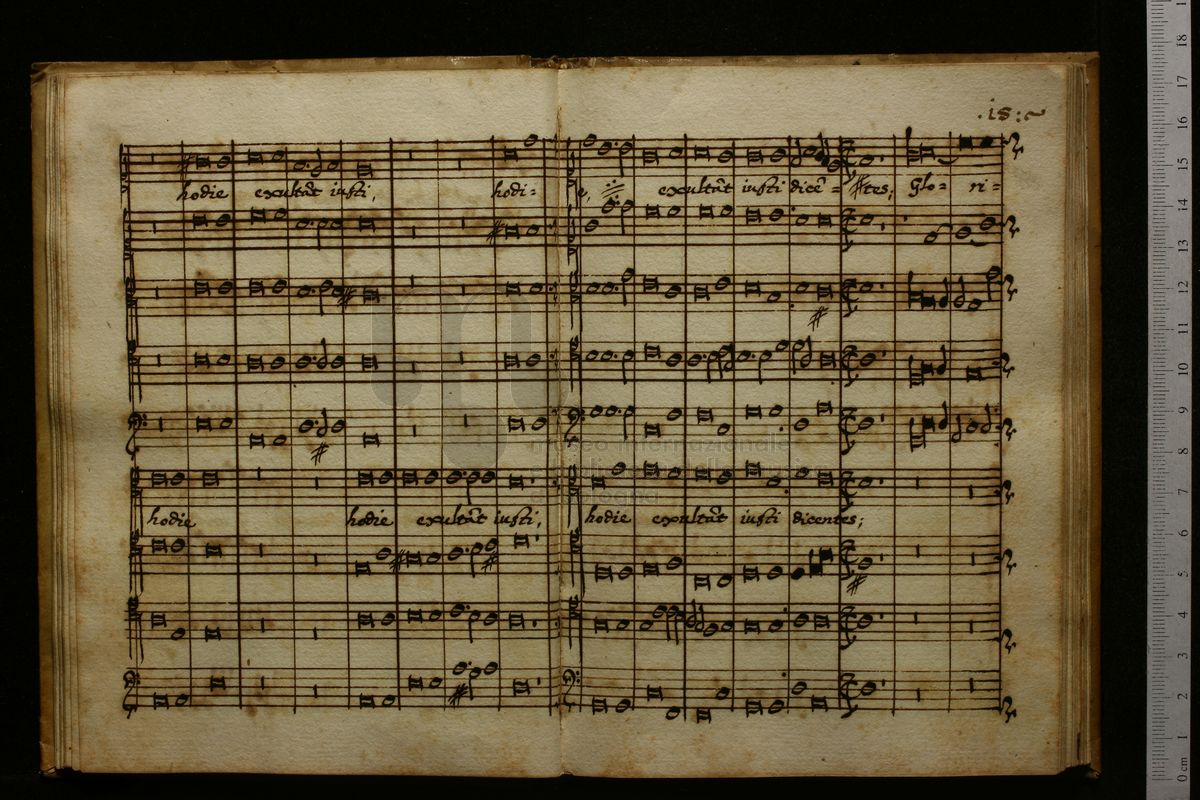 .18:~
hodie exultāt iusti, hodi= e, exultāt iusti dicē= tes; Glo= ri=
museo internazionale
e biblioteca della musica
di bologna
hodie hodie exultāt iusti, hodie exultāt iusti dicentes;
18
17
16
15
14
13
12
11
10
9
8
7
6
5
4
3
2
1
0 cm